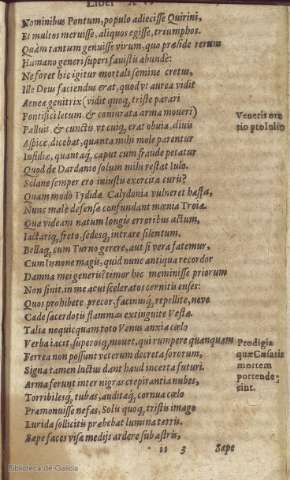 Liber
Nominibus Pontum, populo adiecisse Quirini,
Et multos meruisse, aliquos egisse, triumphos.
Quàm tantum genuisse virum, quo præside rerum
Humano generi superi fauistis abunde:
Ne foret hic igitur mortali semine cretus,
Ille Deus faciendus erat, quod vt aurea vidit
Aeneæ genitrix (vidit quoq, triste parari
Pontifici letum & coniurata arma moueri)
Palluit, & cunctis vt cuiq, erat obuia, diuis
Aspice, dicebat, quanta mihi mole parentur
Insidiæ, quantaq, caput cum fraude petatur
Quod de Dardanio solum mihi restat Iulo.
Solane semper ero iniustis exercita curis?
Quam modò Tydidæ Calydonia vulneret hasta,
Nunc malè defensæ confundant mœnia Troiæ.
Quæ videam natum longis erroribus actum,
Iactariq, freto, sedesq, intrare silentum,
Bellaq, cum Turno gerere, aut si vera fatemur,
Cum Iunone magis, quid nunc antiqua recordor
Damna mei generis? temor hic meminisse priorum
Non sinit, in me acui sceleratos cernitis enses:
Quos prohibete precor, facinusq, repellite, neve
Cæde sacerdotis flammas extinguite Vestæ.
Talia nequicquam toto Venus anxia cœlo
Verba iacit, superosq, mouet, qui rumpere quanquam
Ferrea non possunt veterum decreta sororum,
Signa tamen luctus dant haud incerta futuri.
Arma ferunt inter nigras crepitantia nubes,
Terribilesq, tubas, auditaq, cornua cœlo
Præmonuisse nefas, Solis quoq, tristis imago
Lurida sollicitis præbebat lumina terris.
Sæpe faces visæ medijs ardere sub astris,
11 3 Sæpe
Veneris ora
tio pro Iulio
Prodigia
quæ Cæsaris
mortem
portende-
sint.
Biblioteca de Galicia